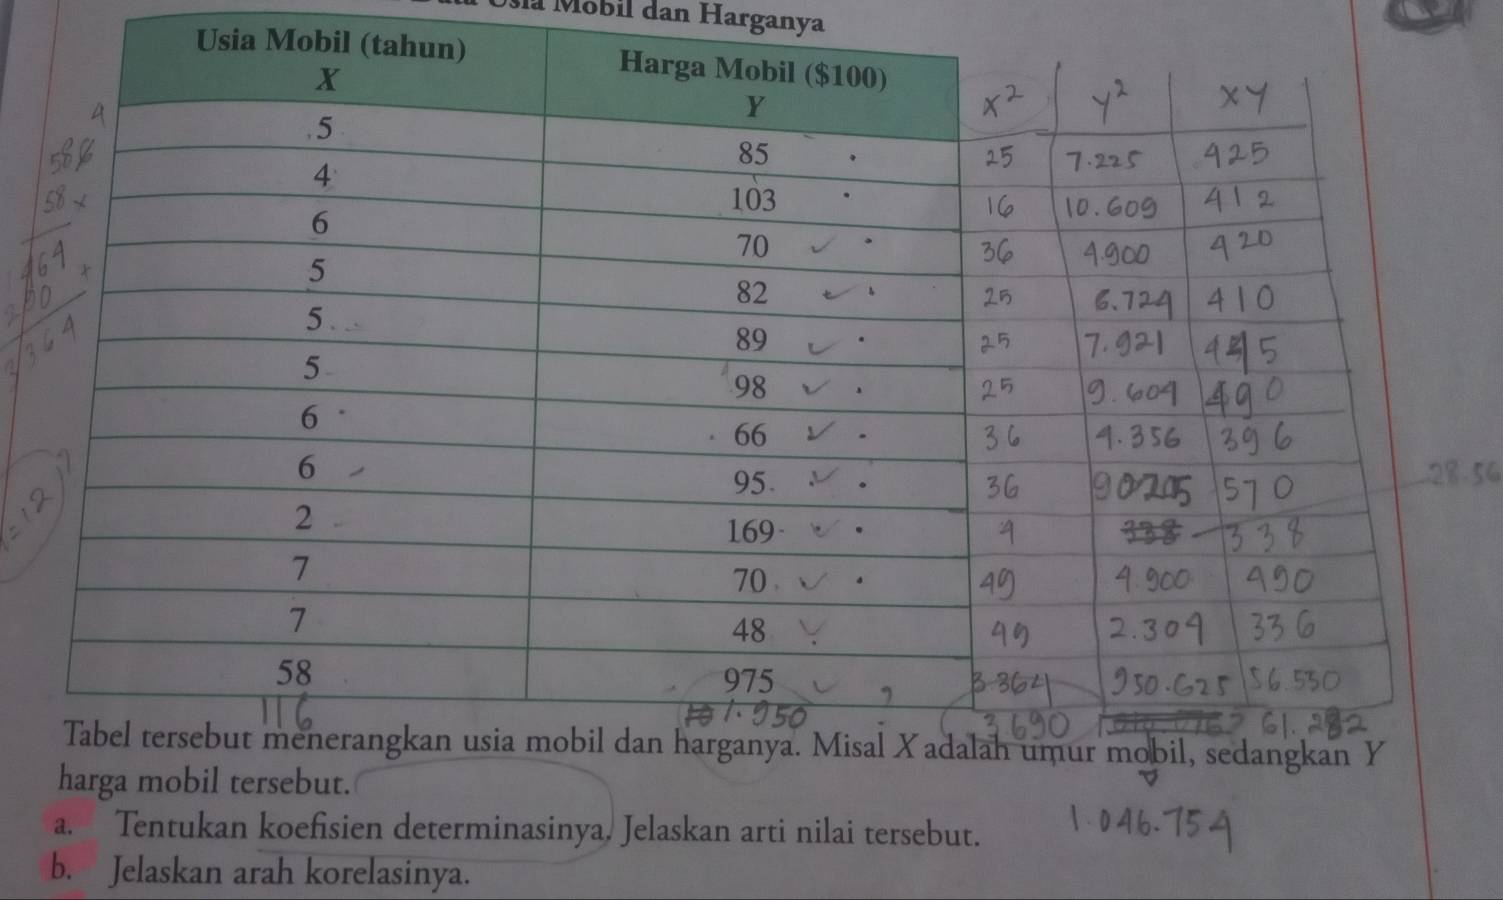 Usia Mobil dan Harganya
Usia Mobil (tahun) X Harga Mobil ($100) Y x² y² xy
5 85 25 7.225 425
4 103 16 10.609 412
6 70 36 4.900 420
5 82 25 6.724 410
5 89 25 7.921 445
5 98 25 9.604 490
6 66 36 4.356 396
6 95 36 570
2 169 4 338 338
7 70 49 4.900 490
7 48 49 2.304 336
58 975 3.364 950.625 56.550
116 1.950 3.690 61.282
Tabel tersebut menerangkan usia mobil dan harganya. Misal X adalah umur mobil, sedangkan Y
harga mobil tersebut.
1.046.754
a. Tentukan koefisien determinasinya, Jelaskan arti nilai tersebut.
b. Jelaskan arah korelasinya.
58 x
464 +
3364
28.56